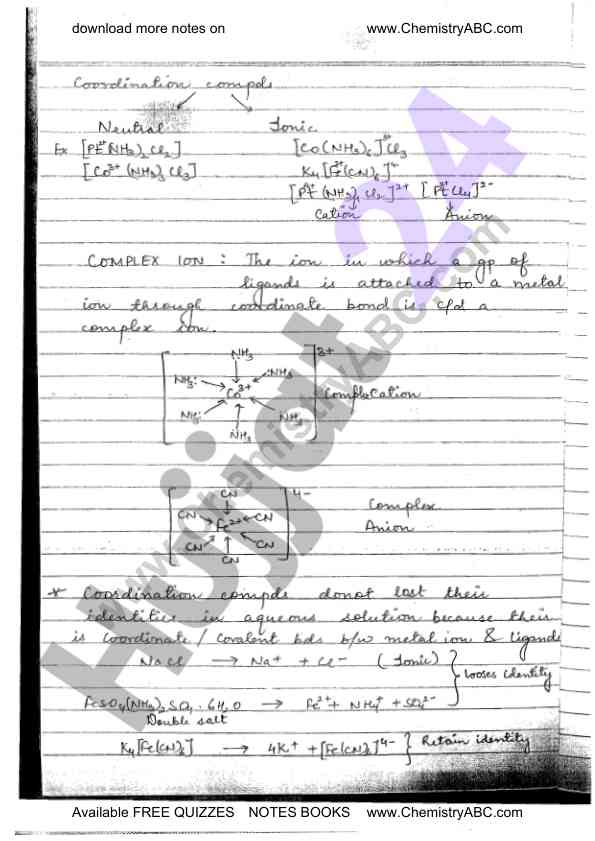 download more notes on www.ChemistryABC.com
Coordination compds
Neutral Ionic
Ex [Pt²⁺(NH3)2 Cl2] [Co(NH3)6]³⁺Cl3
[Co³⁺(NH3)3 Cl3] K4[Fe(CN)6]⁴⁻
[Pt⁴⁺(NH3)4 Cl2]²⁺ [Pt²⁺Cl4]²⁻
Cation Anion
COMPLEX ION : The ion in which a gp of
ligands is attached to a metal
ion through coordinate bond is c/d a
complex ion.
NH3 3+
NH3: :NH3
Co³⁺ Complex Cation
NH3: NH3
NH3
CN 4-
CN CN Complex
Fe²⁺ Anion
CN CN
CN
* Coordination compds donot lost their
identities in aqueous solution because their
is coordinate / covalent bds b/w metal ion & ligands
NaCl → Na⁺ + Cl⁻ (Ionic)
Looses identity
FeSO4(NH4)2SO4·6H2O → Fe²⁺ + NH4⁺ + SO4²⁻
Double salt
K4[Fe(CN)6] → 4K⁺ + [Fe(CN)6]⁴⁻ } Retain identity
Hujjat 24
www.ChemistryABC.com
Available FREE QUIZZES NOTES BOOKS www.ChemistryABC.com